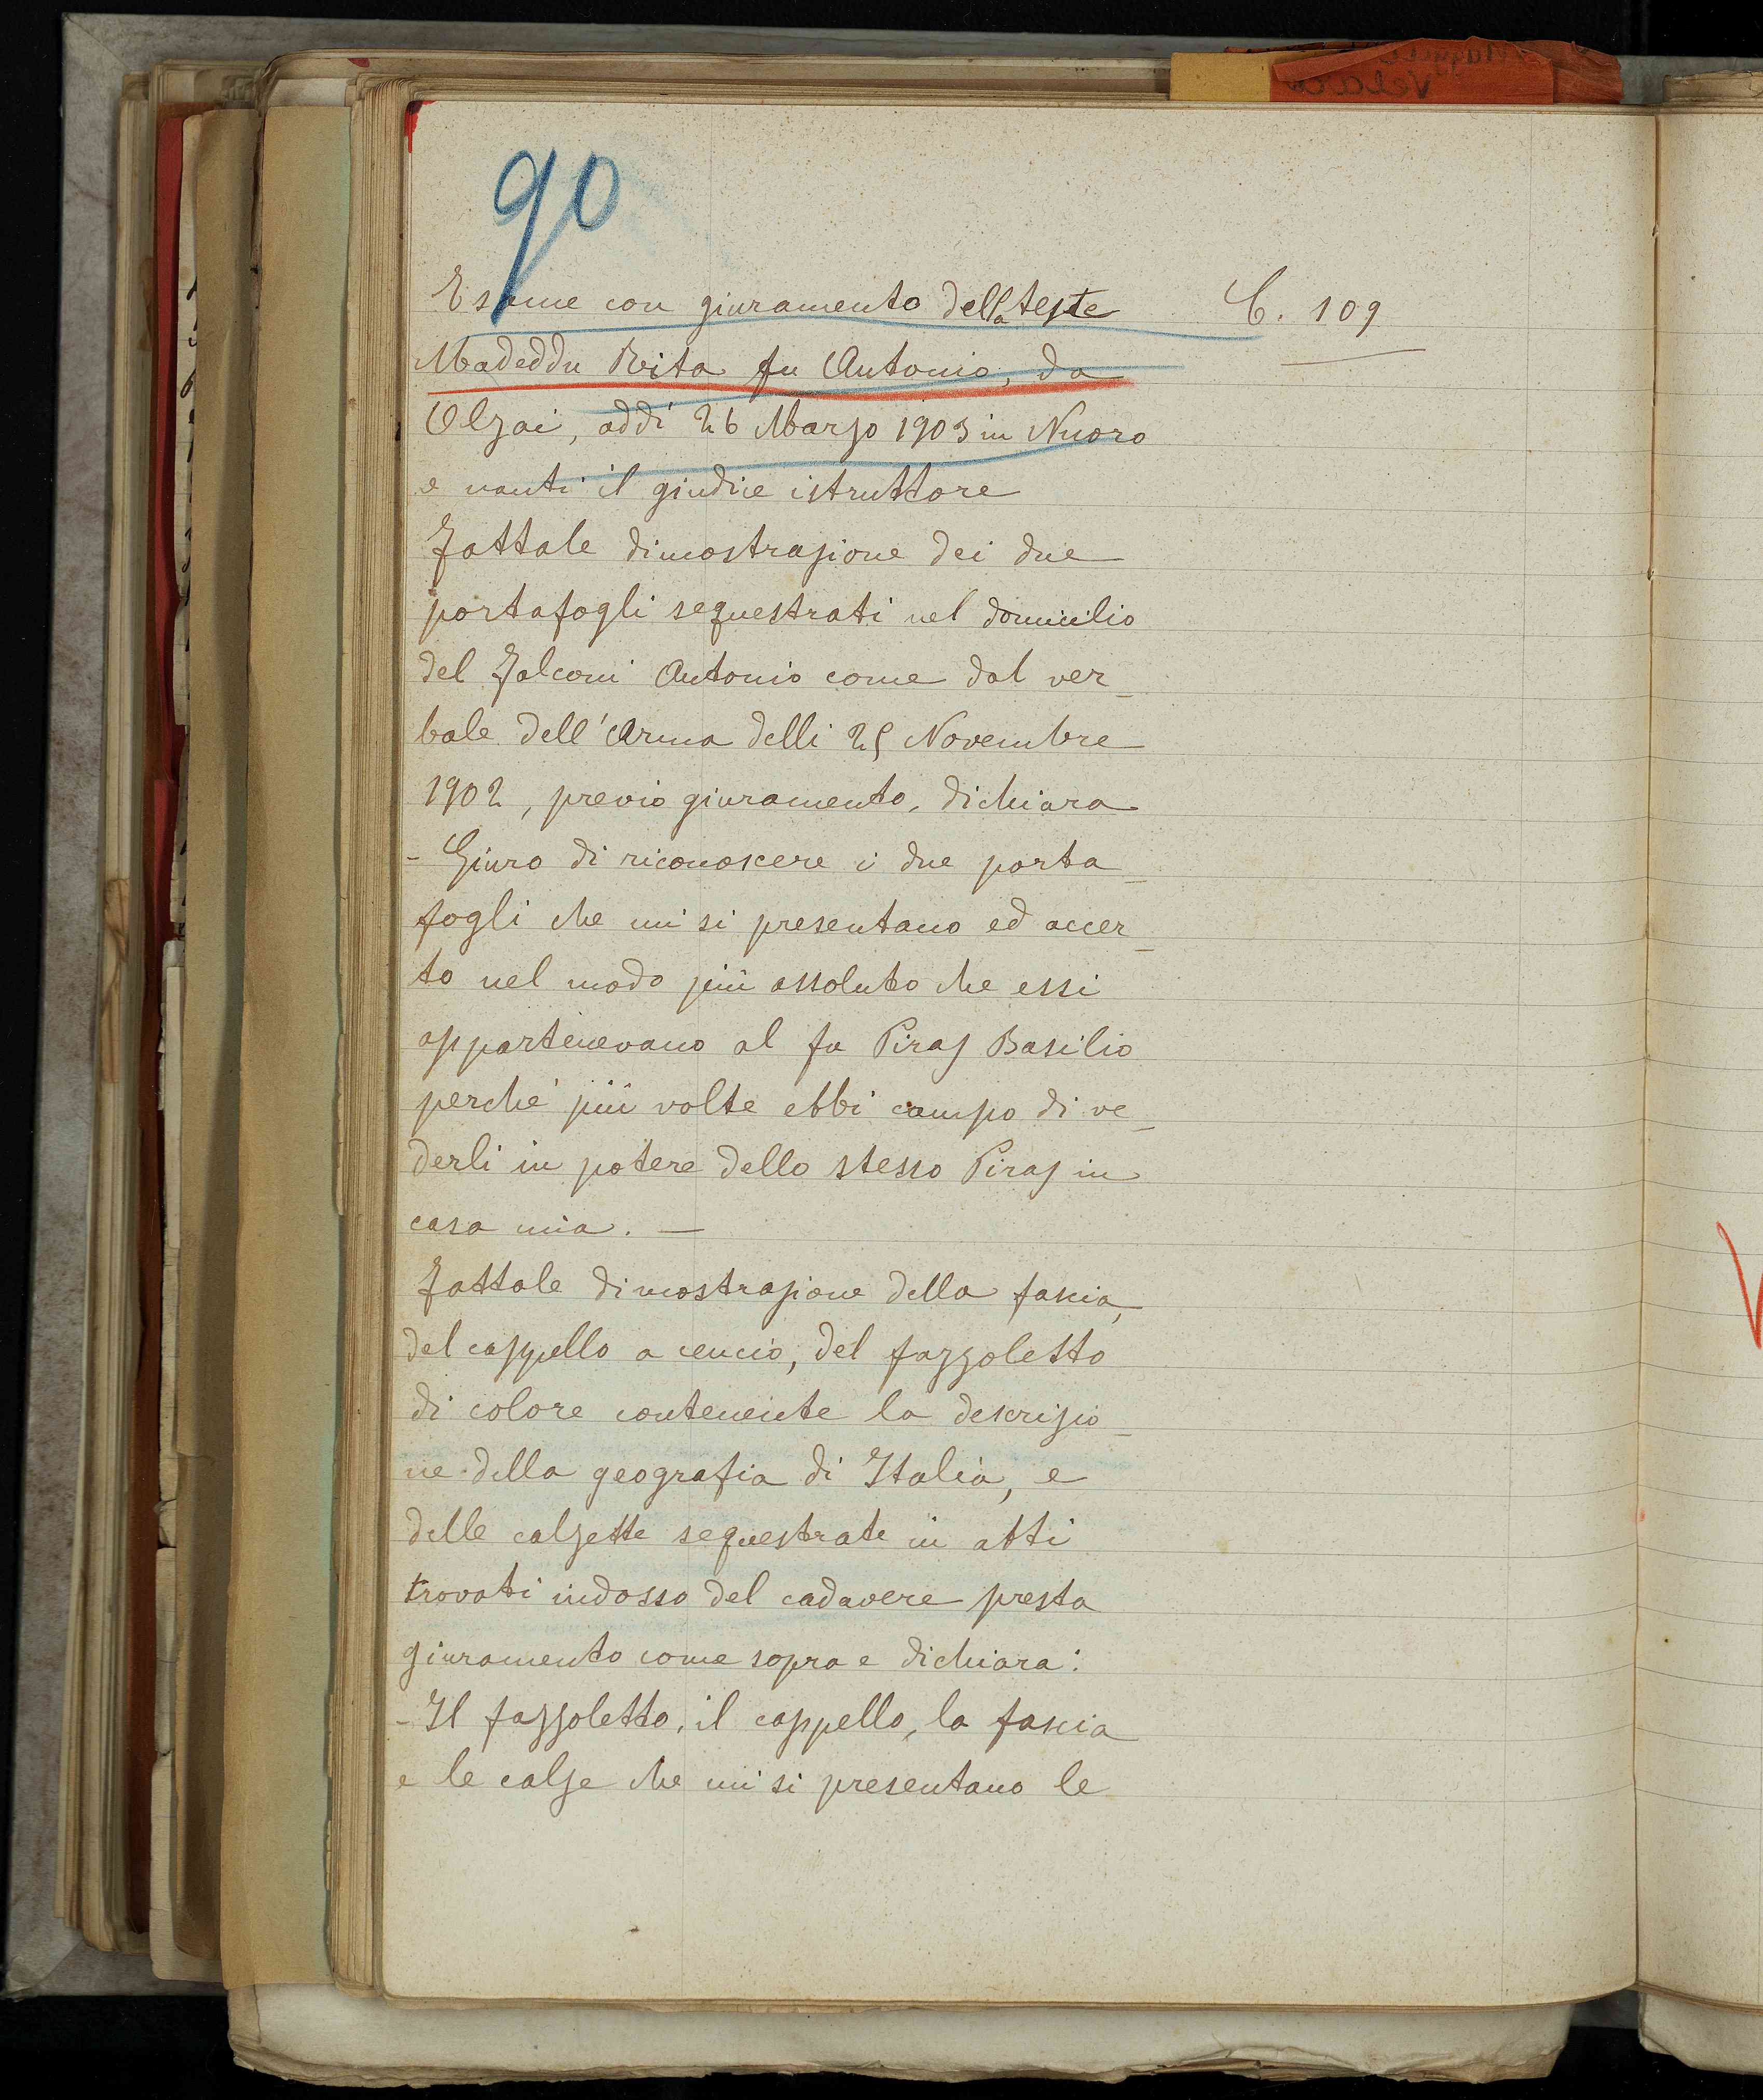 90
Esame con giuramento della teste
C. 109
Madeddu Rita fu Antonio, da
Olzai, addì 26 Marzo 1903 in Nuoro
e vanti il giudice istruttore
Fattale dimostrazione dei due
portafogli sequestrati nel domicilio
del Falconi Antonio come dal ver_
bale dell'Arma delli 25 Novembre
1902, previo giuramento, dichiara
- Giuro di riconoscere i due porta_
fogli che mi si presentano ed accer_
to nel modo più assoluto che essi
appartenevano al fu Piras Basilio
perché più volte ebbi campo di ve_
derli in potere dello stesso Piras in
casa mia. —
Fattale dimostrazione della fascia,
del cappello a cencio, del fazzoletto
di colore contenente la descrizio_
ne della geografia di Italia, e
delle calzette sequestrate in atti
trovati indosso del cadavere presta
giuramento come sopra e dichiara:
- Il fazzoletto, il cappello, la fascia
e le calze che mi si presentano le